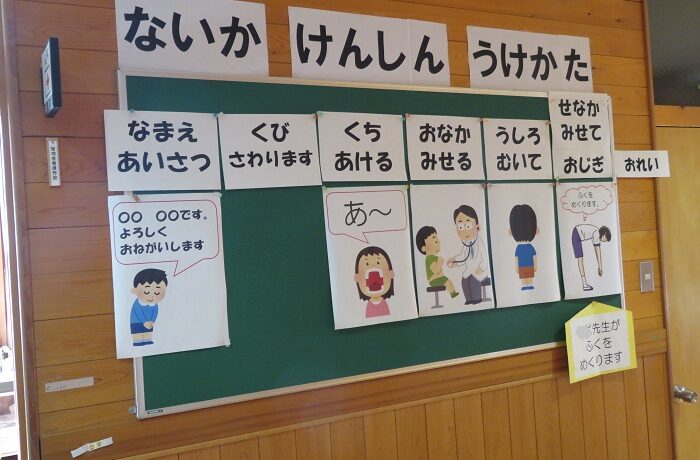 ないか けんしん うけかた
なまえ
あいさつ
くび
さわります
くち
あける
おなか
みせる
うしろ
むいて
せなか
みせて
おじぎ
おれい
○○ ○○です。
よろしく
おねがいします
あ～
ふくを
めくります。
先生が
ふくを
めくります